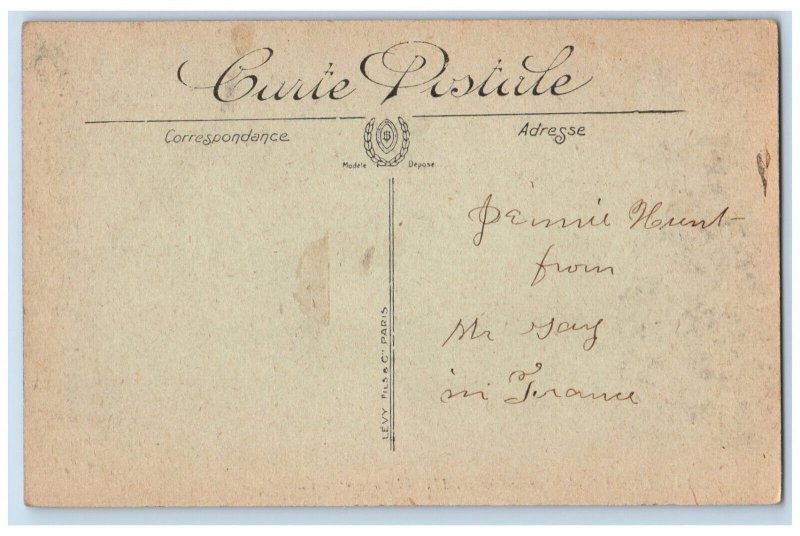 Carte Postale
Correspondance
Adresse
Modèle Déposé
LÉVY FILS & Cie PARIS
Jennie Hunt
from
Mr Gay
in France